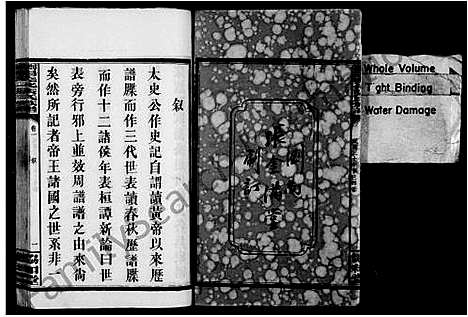 敘
太史公作史記自謂讀黃帝以來歷
譜牒而作三代世表讀春秋歷譜牒
而作十二諸侯年表桓譚新論曰世
表旁行邪上並效周譜譜之由來尙
矣然所記者帝王諸國之世系非一
卷一
敘
一
Whole Volume
Tight Binding
Water Damage